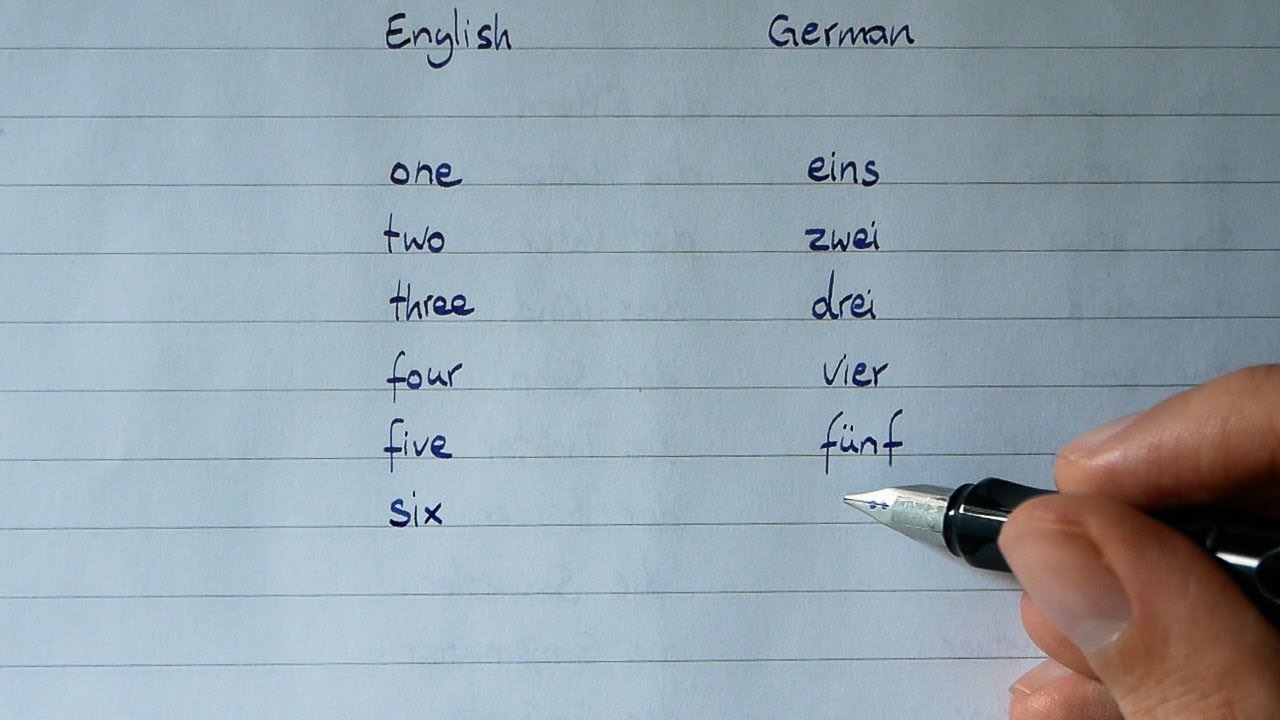 English German
one eins
two zwei
three drei
four vier
five fünf
six